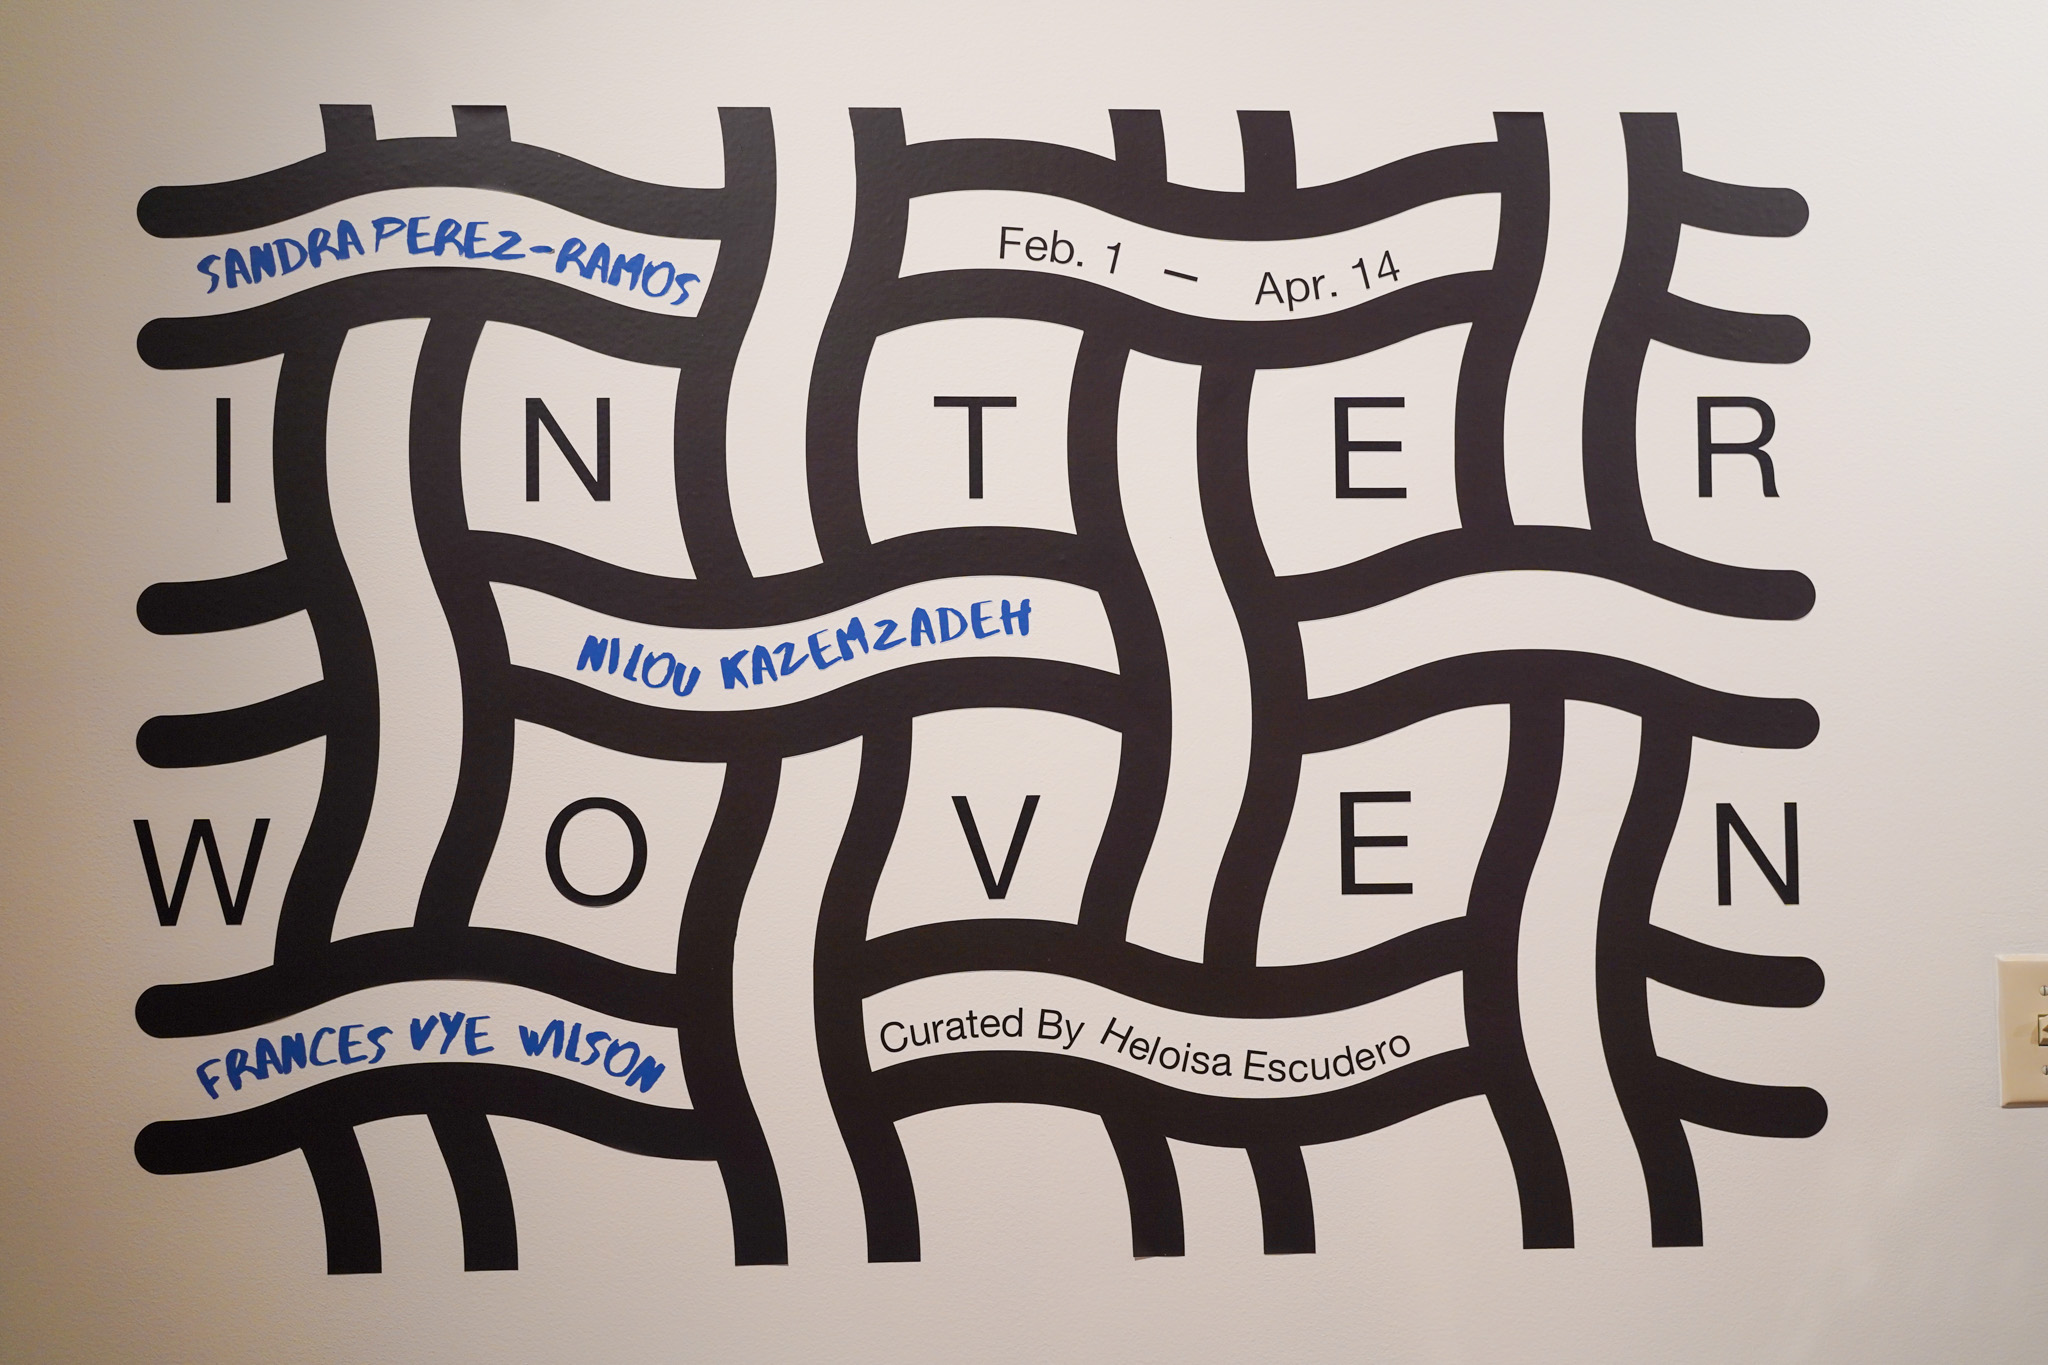 SANDRA PEREZ-RAMOS
Feb. 1 – Apr. 14
INTER
NILOU KAZEMZADEH
WOVEN
FRANCES VYE WILSON
Curated By Heloisa Escudero